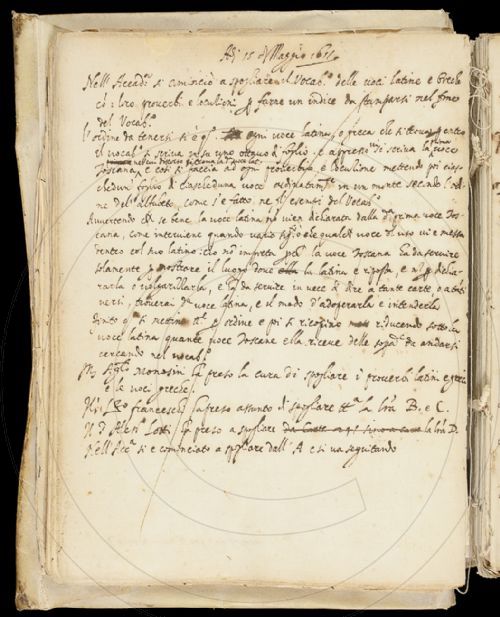 Adì 15 di Maggio 1611
Nell'Accad.ª si cominciò a spogliare il Vocab.º delle voci latine e Greche
cò i loro proverbi e locuzioni p farne un indice da stamparsi nel fine
del Vocab.º
L'ordine da tenersi è q.º ogni voce latina, o greca che si truova entro
il vocab.º si scriva in su uno ottavo di foglio, e appresso si scriva la voce
Toscana, e così si faccia ad ogni proverbio e locuzione mettendo poi ciascheduni
foglio di ciascheduna voce ordinatam.te in un monte secondo l'ordine
dell'alfabeto, come s'è fatto ne gl'esempi del Vocab.º
Avvertendo che se bene la voce latina nò vien dichiarata dalla d.ª prima voce Toscana,
come interviene quando
dentro col suo latino: ciò nò importa p.che la voce Toscana ha da servire
solamente p mostrare il luogo dove la latina è riposta, e nò p dichiararla
o volgarizzarla, e ha da servire in vece di dire a tante carte o a tanti
versi, troverai d.ª voce latina, e il modo d'adoperarla e intenderla
Finito q.º si mettino p ordine e poi si riduchino riducendo sotto la
voce latina quante voce Toscane ella riceve delle da andarsi
cercando nel vocab.º
Monosini ha preso la cura di spogliare i proverbi latini e greci
e le voci greche.
franceschi ha preso assunto di spogliare la B. e C.
Lotti ha preso a spogliare la D.
Nell'Acc.ª si è cominciato a spogliare dall'A e si va seguitando